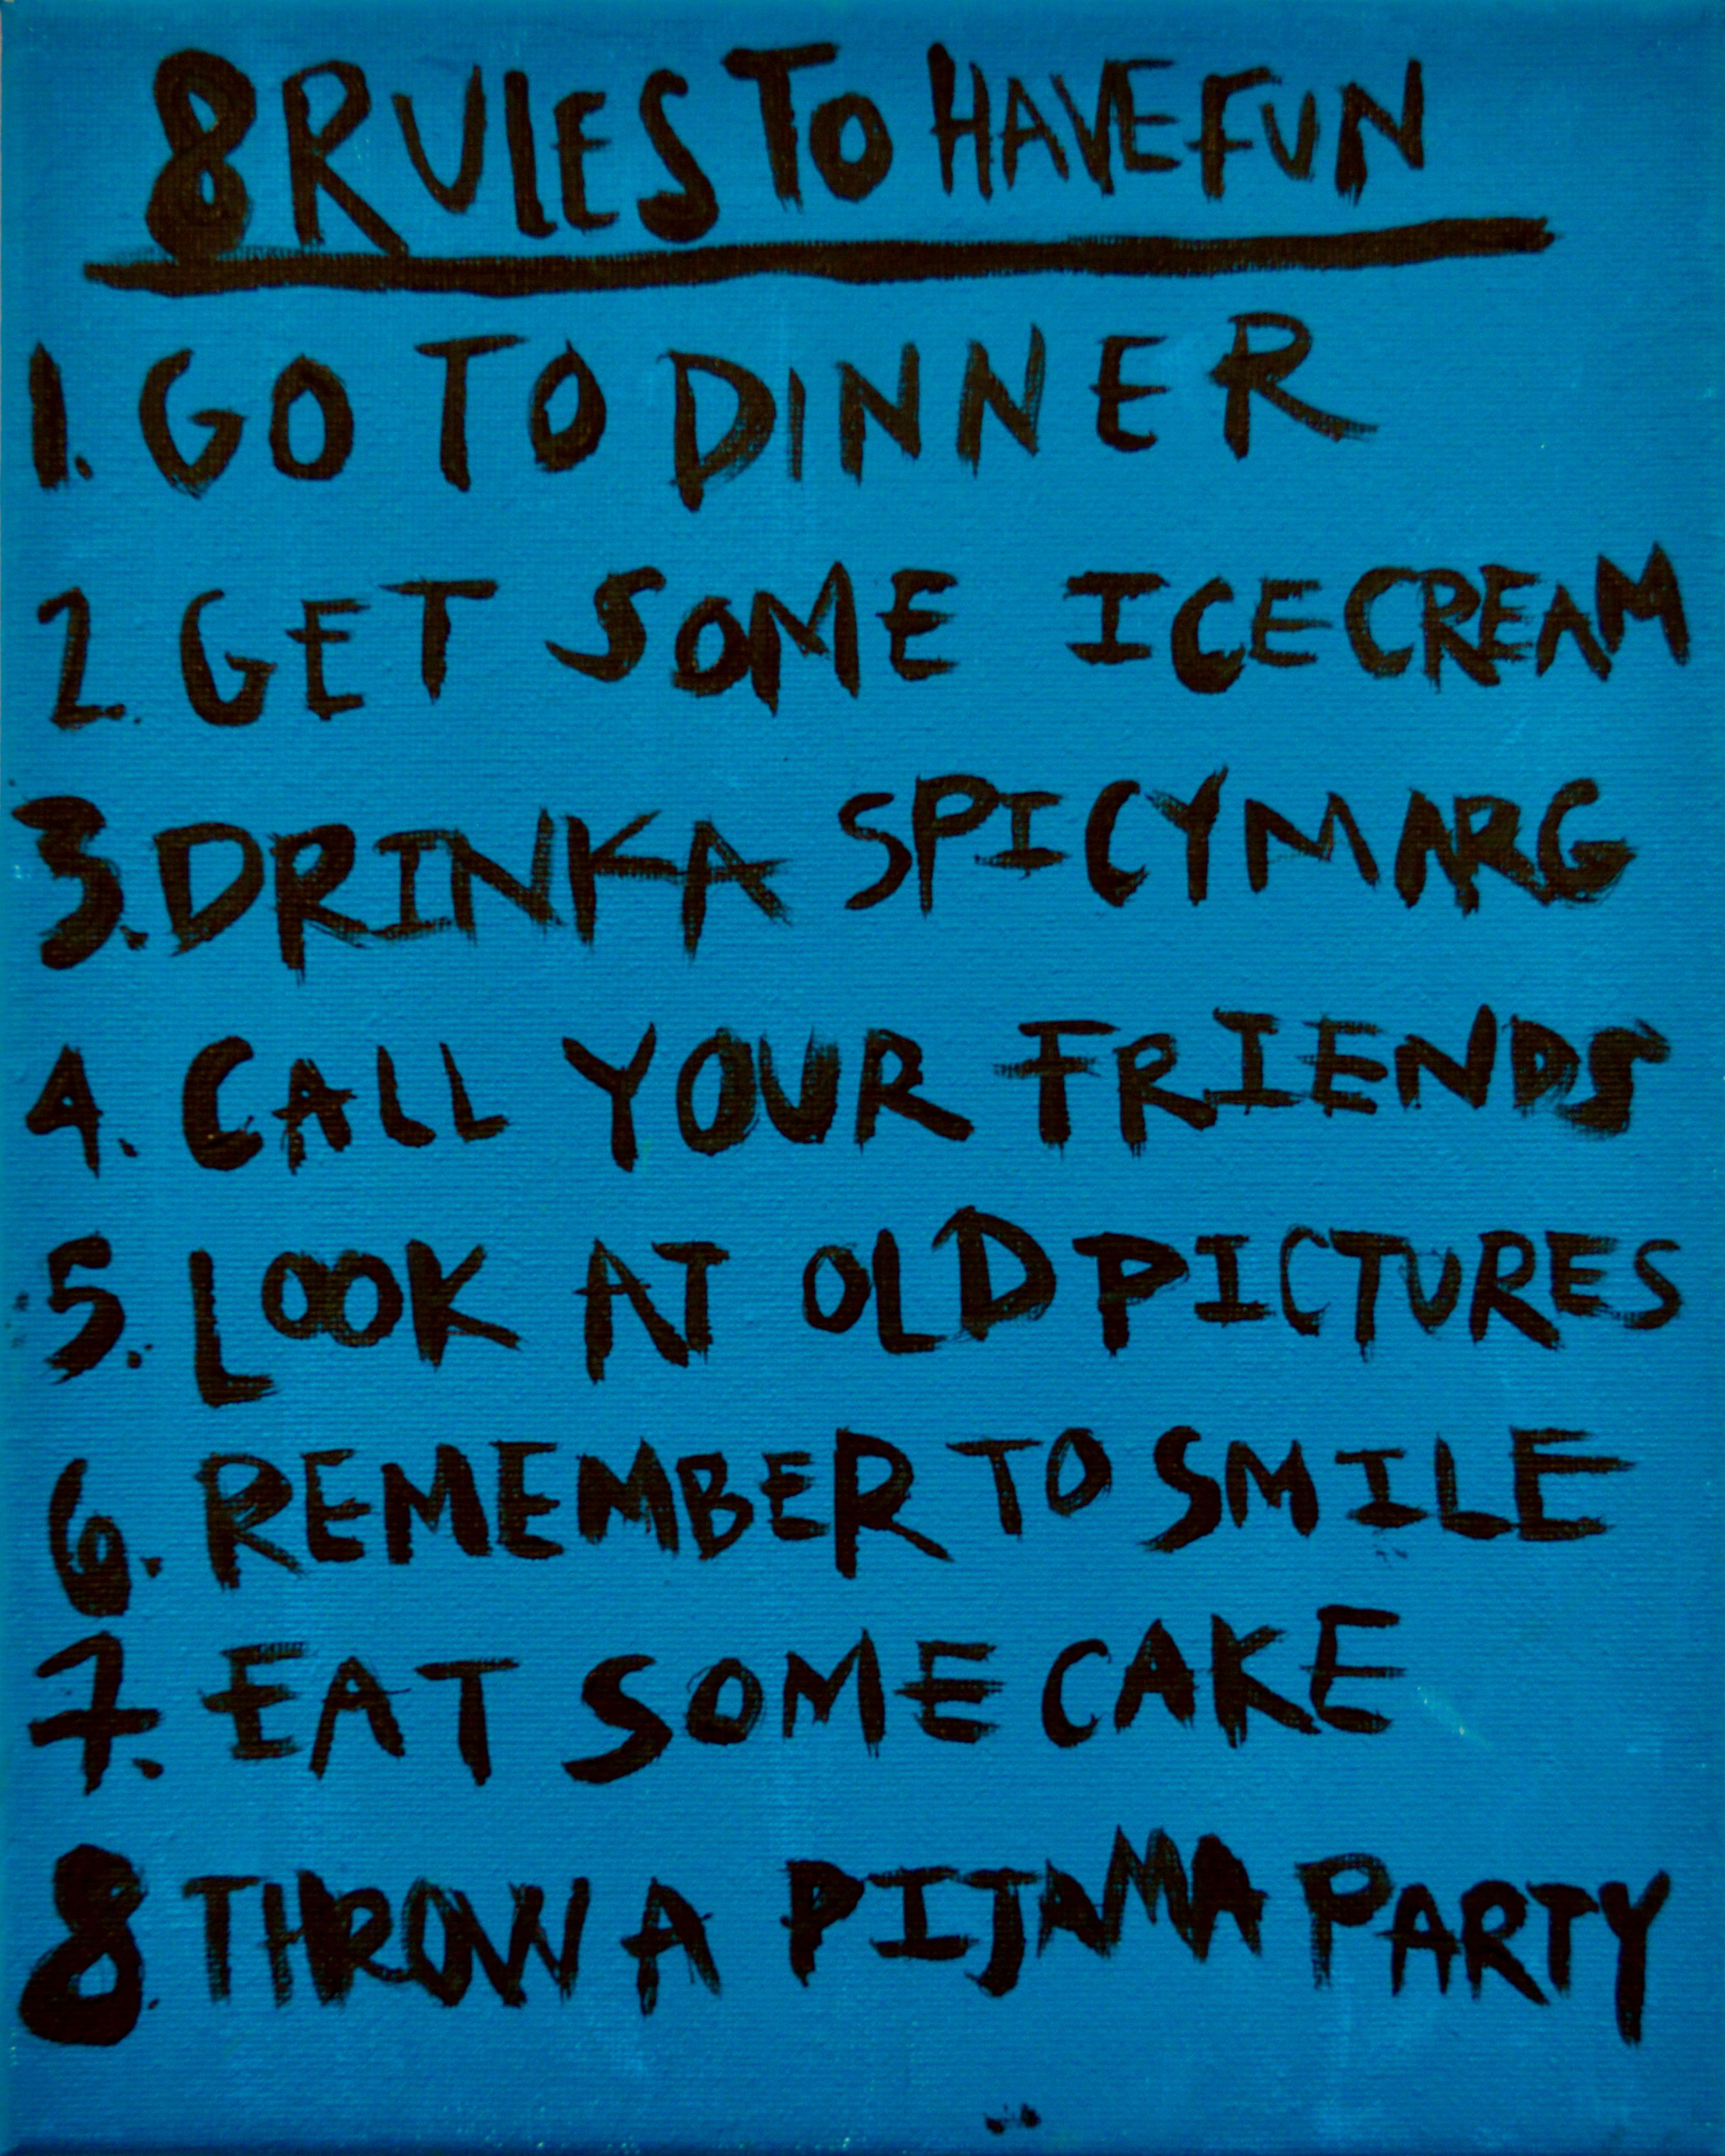 8 RULES TO HAVE FUN
1. GO TO DINNER
2. GET SOME ICE CREAM
3. DRINK A SPICY MARG
4. CALL YOUR FRIENDS
5. LOOK AT OLD PICTURES
6. REMEMBER TO SMILE
7. EAT SOME CAKE
8. THROW A PIJAMA PARTY